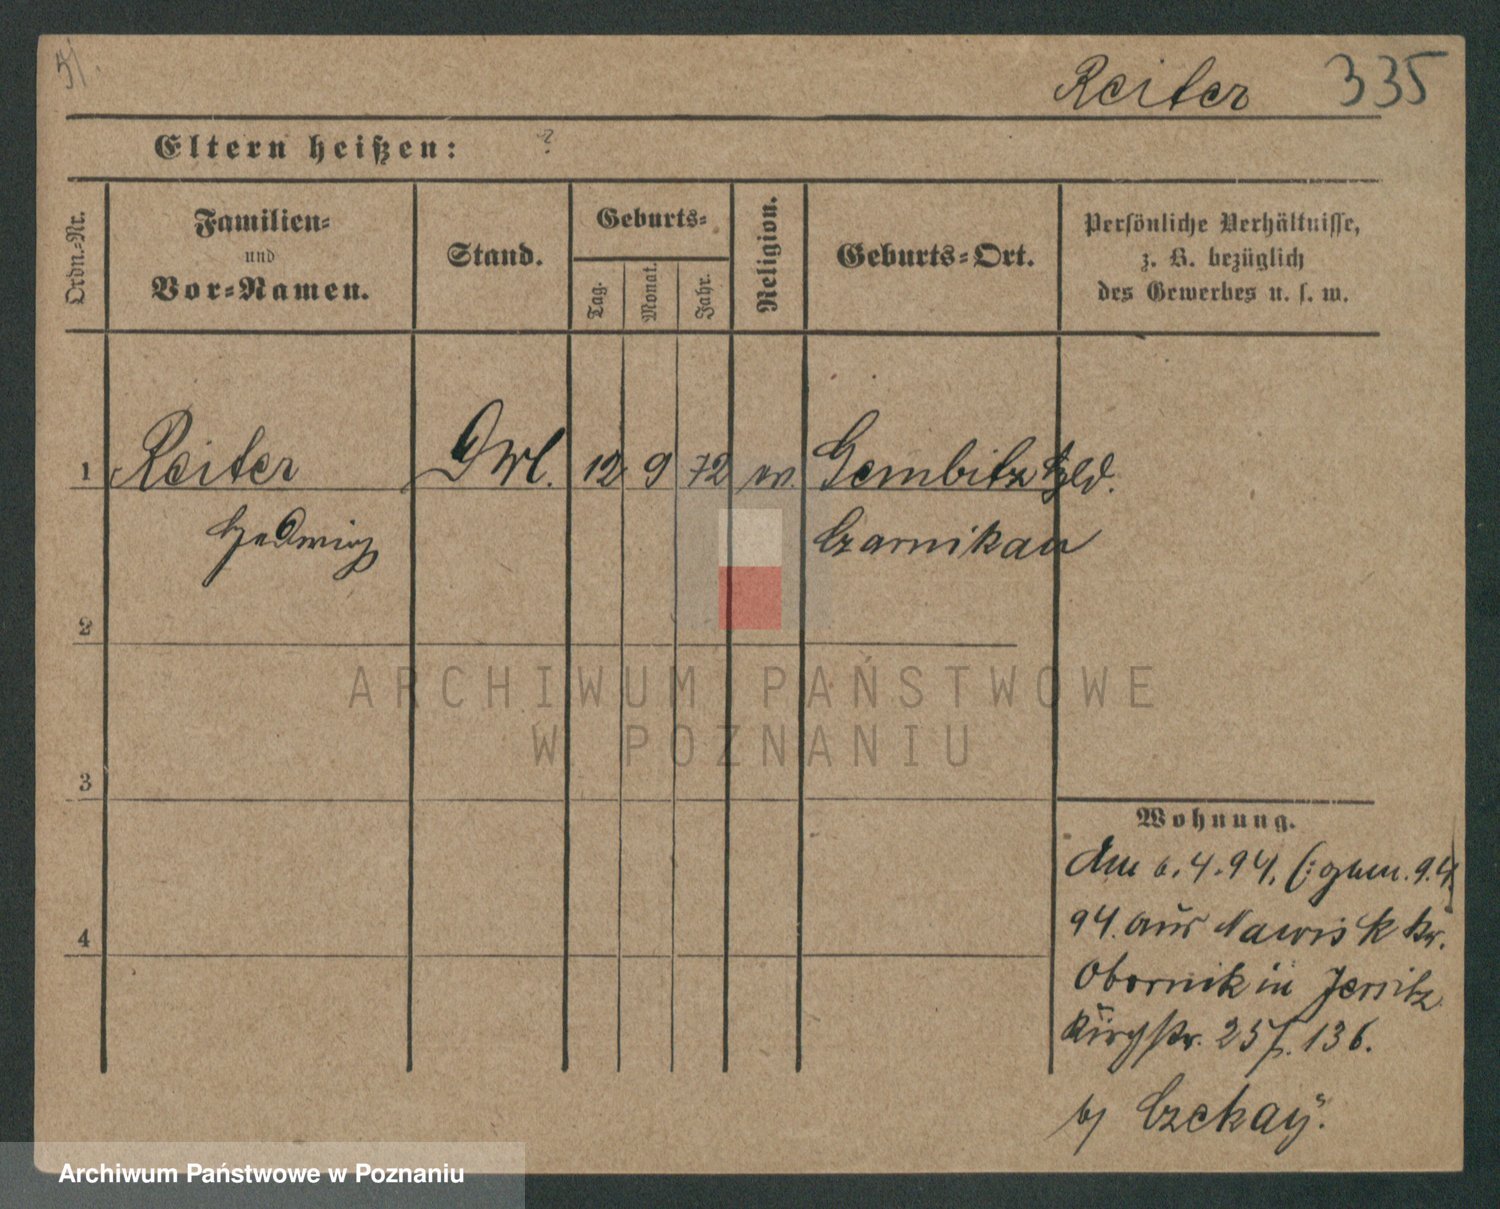 Reiter 335
Eltern heißen: ?
Ordn.-Nr.
Familien-
und
Vor-Namen.
Stand.
Geburts-
Tag.
Monat.
Jahr.
Religion.
Geburts-Ort.
Persönliche Verhältnisse,
z. B. bezüglich
des Gewerbes u. s. w.
1 Reiter 12 9 72 Gembitz Hld.
Hedwig Czarnikau
2
3
4
Wohnung.
Am 6.4.94. (: gem. 9.4.
94. aus Nawisk Kr.
Obornik in Jersitz
Kirchstr. 25 f. 136.
b/ Czekay.
ARCHIWUM PAŃSTWOWE
W POZNANIU
Archiwum Państwowe w Poznaniu